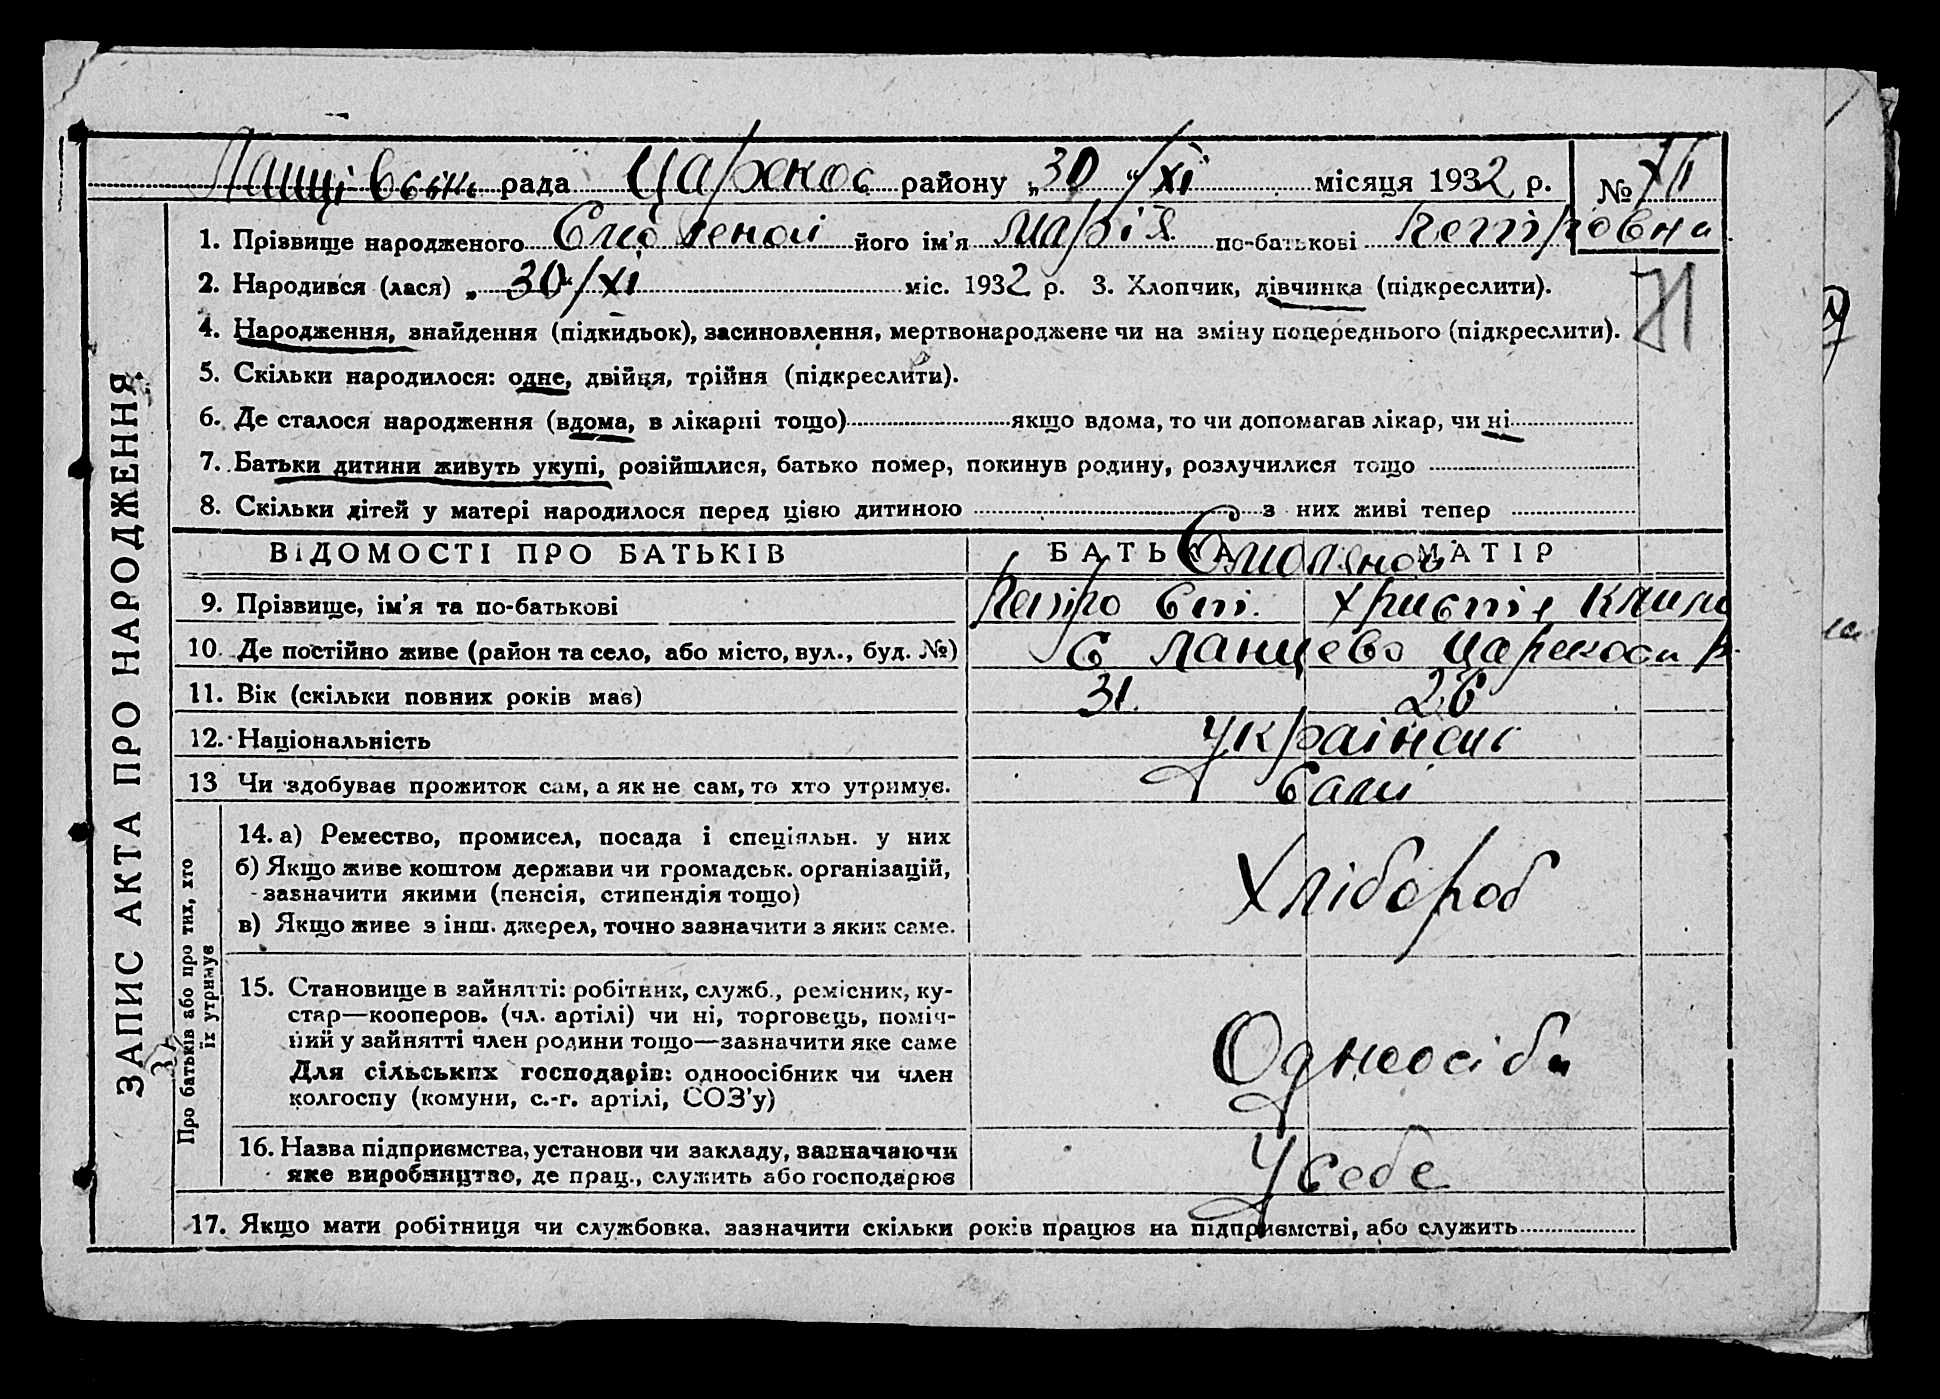 рада Царекос району „30“/XI місяця 1932 р. №
1. Прізвище народженого його ім'я Марія по-батькові Петровна
2. Народився (лася) „30“/XI міс. 1932 р. 3. Хлопчик, дівчинка (підкреслити).
71
4. Народження, знайдення (підкидьок), засиновлення, мертвонароджене чи на зміну попереднього (підкреслити).
5. Скільки народилося: одне, двійця, трійня (підкреслити).
6. Де сталося народження (вдома, в лікарні тощо) якщо вдома, то чи допомагав лікар, чи ні
7. Батьки дитини живуть укупі, розійшлися, батько помер, покинув родину, розлучилися тощо
8. Скільки дітей у матері народилося перед цією дитиною з них живі тепер
ВІДОМОСТІ ПРО БАТЬКІВ БАТЬКА МАТІР
9. Прізвище, ім'я та по-батькові Петро Христія
10. Де постійно живе (район та село, або місто, вул., буд. №) с Ланцево
11. Вік (скільки повних років має) 31 26
12. Національність
13 Чи здобуває прожиток сам, а як не сам, то хто утримує. Самі
14. а) Ремество, промисел, посада і спеціяльн. у них
б) Якщо живе коштом держави чи громадськ. організацій,
зазначити якими (пенсія, стипендія тощо)
Хлібороб
в) Якщо живе з інш. джерел, точно зазначити з яких саме.
15. Становище в зайнятті: робітник, служб., ремісник, ку-
стар—кооперов. (чл. артілі) чи ні, торговець, поміч-
ний у зайнятті член родини тощо—зазначити яке саме
Одноосібн
Для сільських господарів: одноосібник чи член
колгоспу (комуни, с.-г. артілі, СОЗ'у)
16. Назва підприємства, установи чи закладу, зазначаючи
яке виробництво, де прац., служить або господарює
У себе
17. Якщо мати робітниця чи службовка. зазначити скільки років працює на підприємстві, або служить
ЗАПИС АКТА ПРО НАРОДЖЕННЯ
Про батьків або про тих, хто
їх утримує